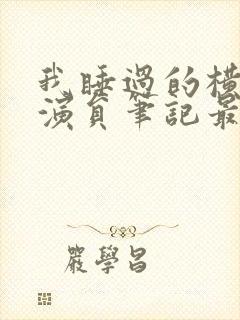 我睡過的橫
演員筆記最
嚴學昌